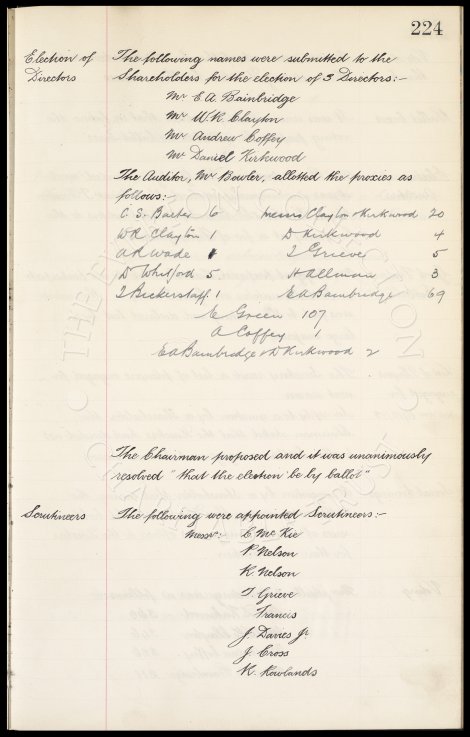 224
Election of
Directors
The following names were submitted to the
Shareholders for the election of 3 Directors:-
Mr E A. Bainbridge
Mr W. R. Clayton
Mr Andrew Coffey
Mr Daniel Kirkwood
The Auditor, Mr Bowler, allotted the proxies as
follows:-
C. S. Baxter 6
WR Clayton 1
A R Wade
D Whitford 5
I Beckerstaff 1
Messrs Clayton & Kirkwood 20
D Kirkwood 4
I Griever 5
H Allman 3
E A Bainbridge 69
E Green 107
A Coffey 1
EA Bainbridge & D Kirkwood 2
The Chairman proposed and it was unanimously
resolved "that the election be by ballot"
Scrutineers
The following were appointed Scrutineers:-
Messrs: C. McKie
P. Nelson
R. Nelson
T. Grieve
Francis
J. Davies Jr
J. Cross
R. Rowlands